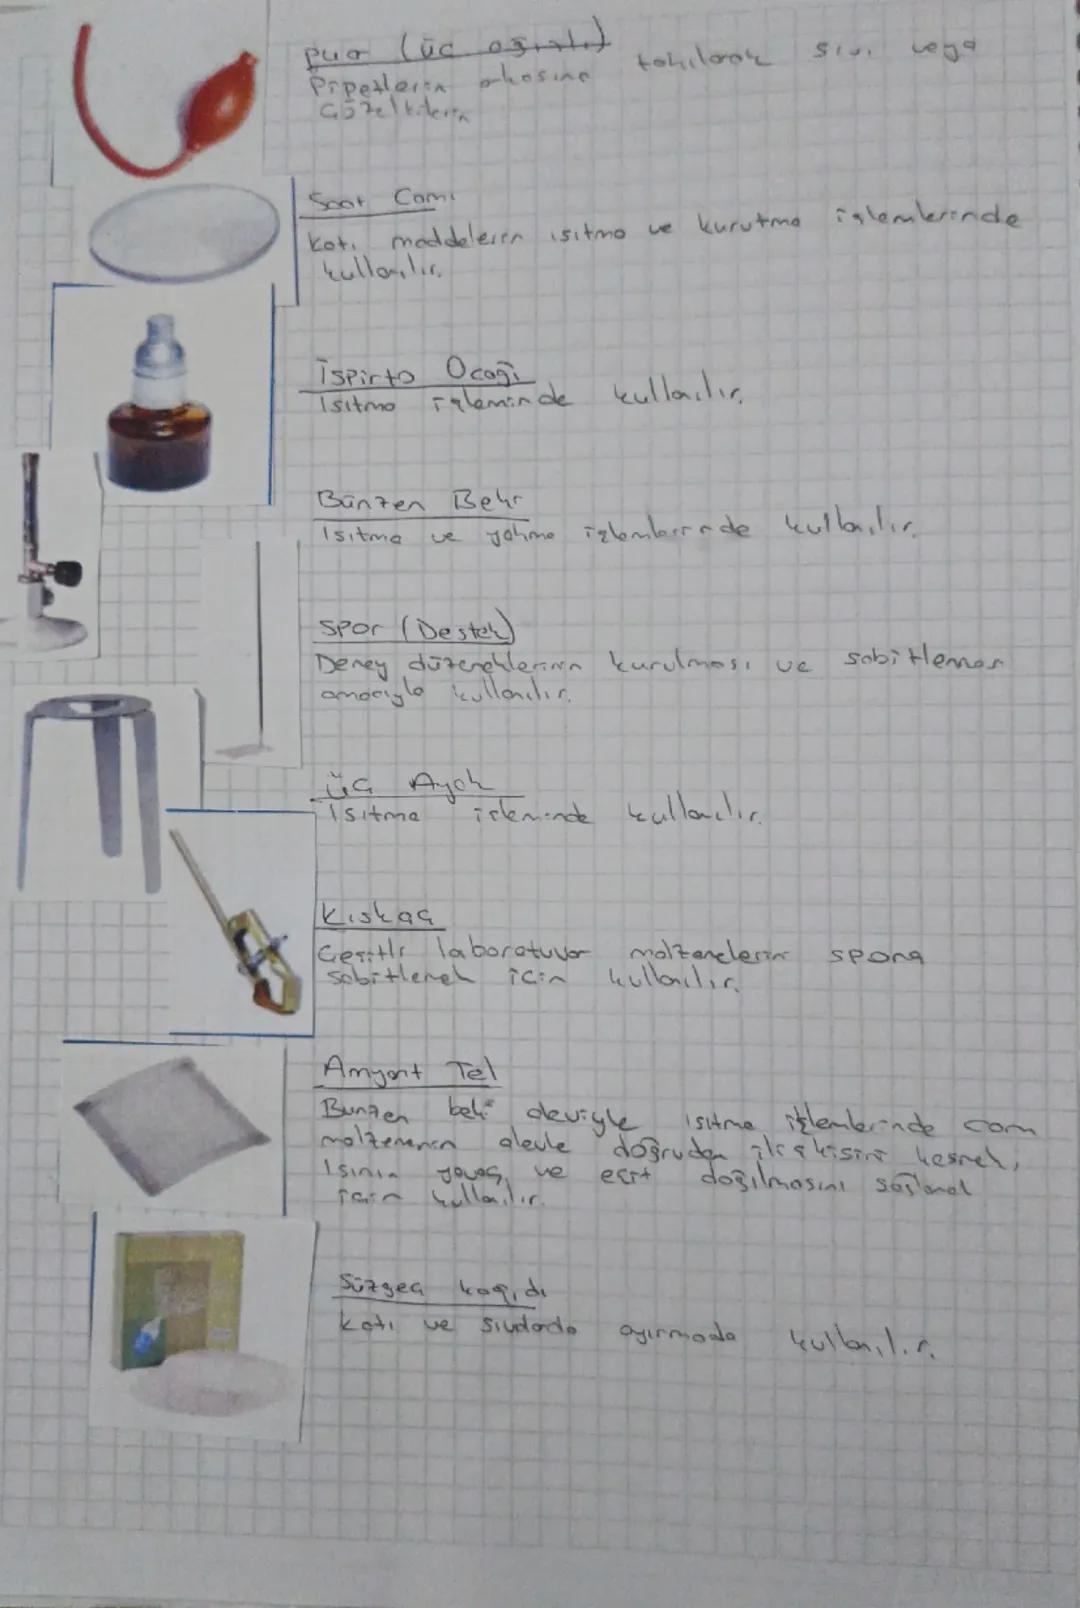 Puar (üç ağızlı)
Pipetlerin arkasına takılarak sıvı veya
Çözeltilerin
Saat Camı
Katı maddelerin ısıtma ve kurutma işlemlerinde
kullanılır.
İspirto Ocağı
Isıtma işleminde kullanılır.
Bünzen Beki
Isıtma ve yakma işlemlerinde kullanılır.
Spor (Destek)
Deney düzeneklerinin kurulması ve sabitlenmesi
amacıyla kullanılır.
Üç Ayak
Isıtma işleminde kullanılır.
Kıskaç
Çeşitli laboratuvar malzemelerin spora
sabitlemek için kullanılır.
Amyant Tel
Bunzen beki aleviyle ısıtma işlemlerinde cam
malzemenin alevle doğrudan ilişkisini kesmek,
Isının yavaş ve eşit dağılmasını sağlamak
için kullanılır.
Süzgeç kağıdı
Katı ve sıvılarda ayırmada kullanılır.